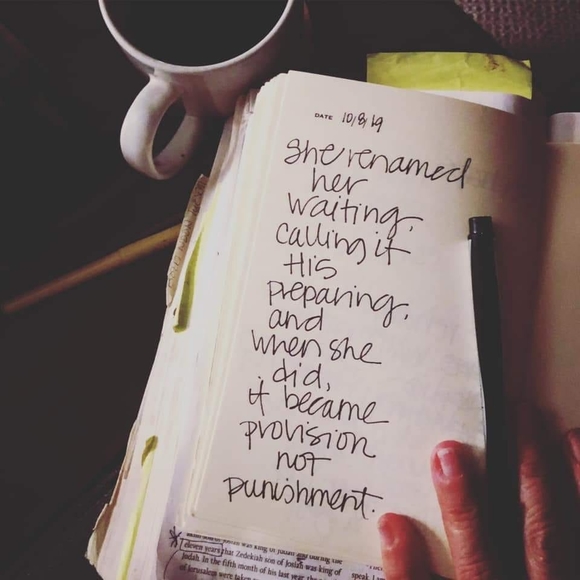 DATE 10/8/19
she renamed
her
waiting,
calling it
His
preparing,
and
when she
did,
it became
provision
not
punishment.
eleven years that Zedekiah son of Josiah was king of
Judah. In the fifth month of his last year, the
of Jerusalem were taken